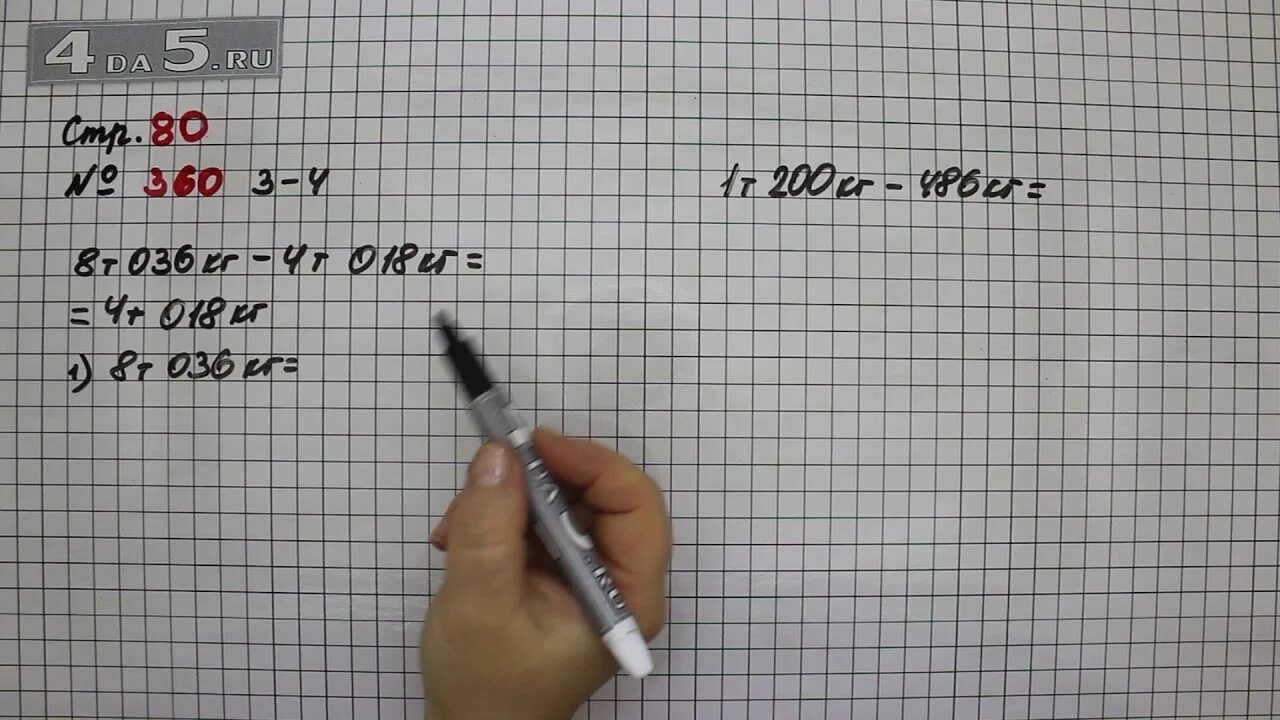 4 DA 5.RU
Стр. 80
№ 360 3-4
8т 036 кг - 4т 018 кг =
= 4т 018 кг
1) 8т 036 кг =
1т 200 кг - 486 кг =